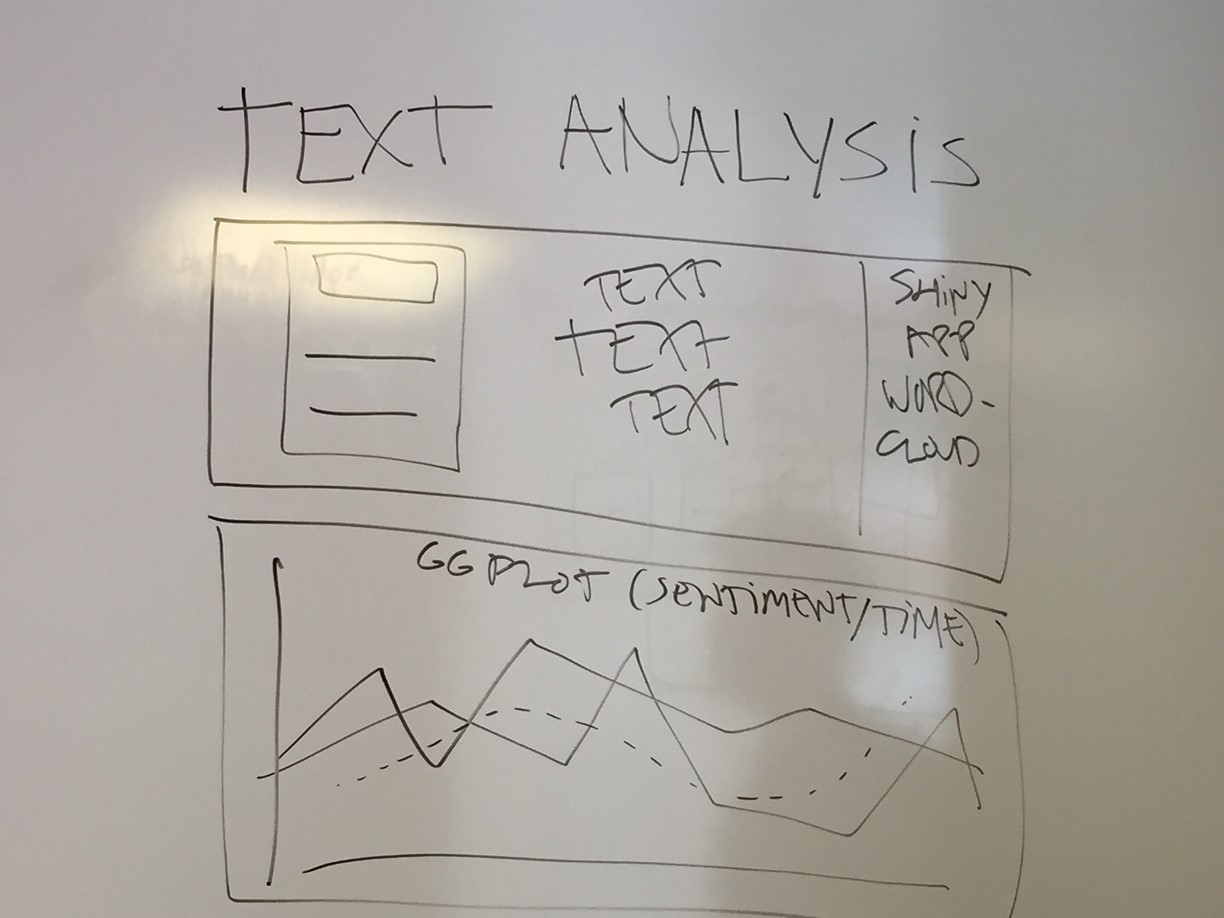 TEXT ANALYSiS
TEXT
TEXT
TEXT
SHiNY
APP
WORD-
CLOUD
GG PLOT (SENTiMENT/TiME)